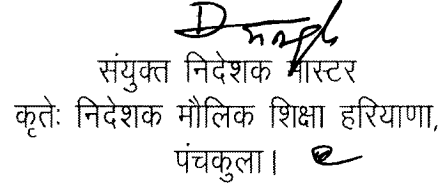 संयुक्त निदेशक मास्टर
कृतेः निदेशक मौलिक शिक्षा हरियाणा,
पंचकुला।